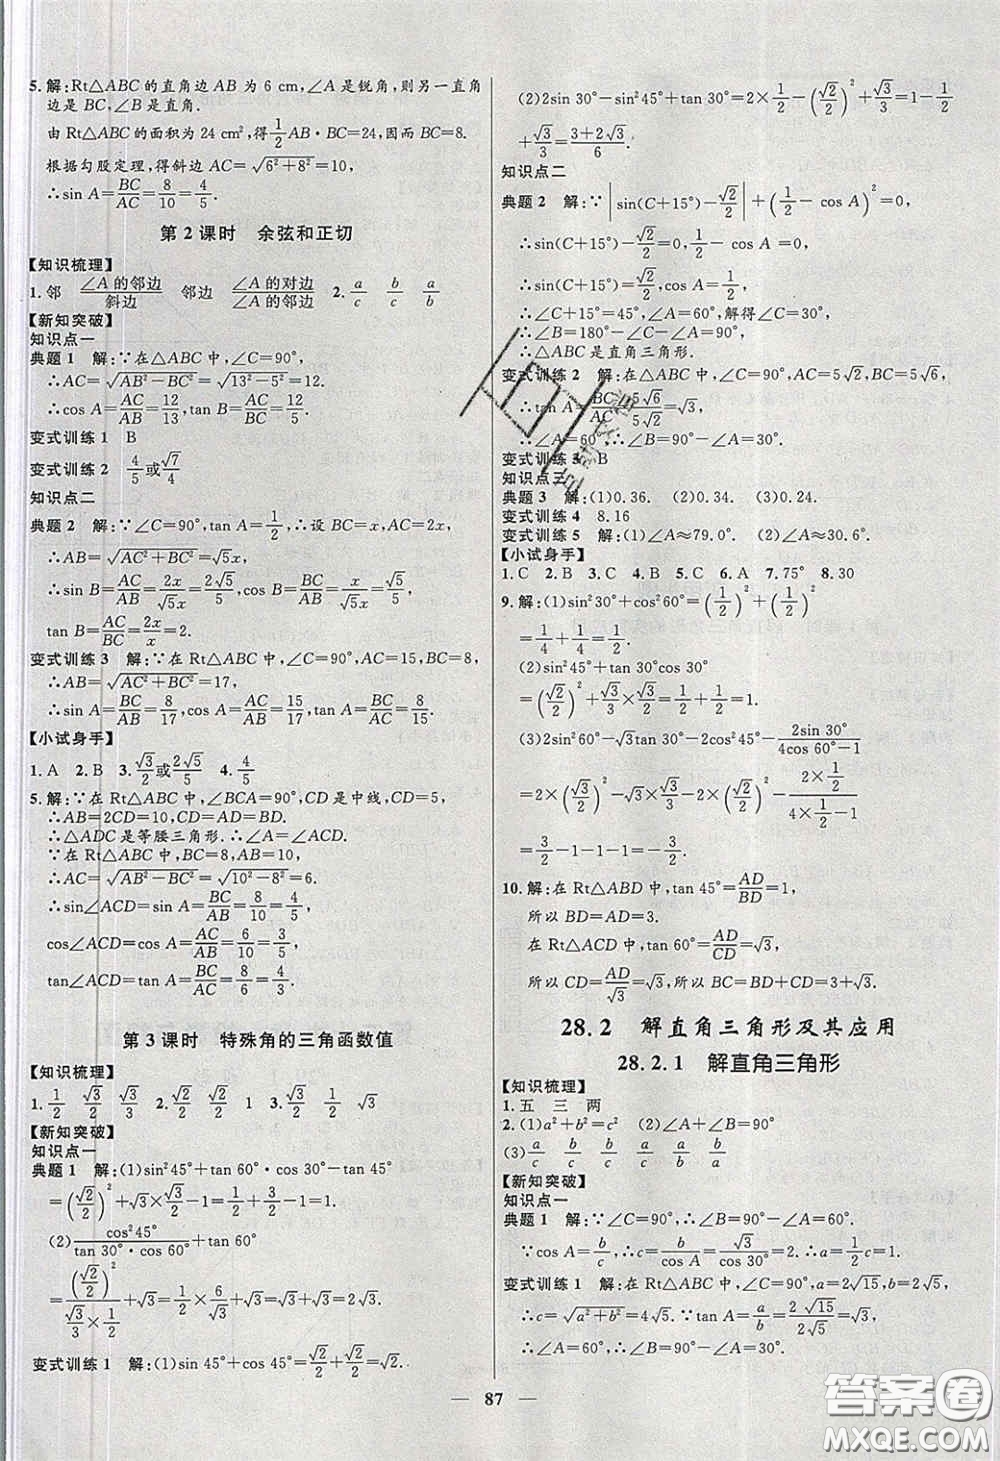 5. 解:Rt△ABC 的直角边 AB 为 6 cm,∠A 是锐角,则另一直角
边是 BC,∠B 是直角.
由 Rt△ABC 的面积为 24 cm²,得 1/2 AB·BC=24,因而 BC=8.
根据勾股定理,得斜边 AC=√(6²+8²)=10,
∴sin A=BC/AC=8/10=4/5.
第 2 课时 余弦和正切
【知识梳理】
1. 邻 ∠A 的邻边/斜边 邻边 ∠A 的对边/∠A 的邻边 2. a/c b/c a/b
【新知突破】
知识点一
典题 1 解:∵在△ABC 中,∠C=90°,
∴AC=√(AB²−BC²)=√(13²−5²)=12.
∴cos A=AC/AB=12/13,tan B=AC/BC=12/5.
变式训练 1 B
变式训练 2 4/5或√7/4
知识点二
典题 2 解:∵∠C=90°,tan A=1/2,∴设 BC=x,AC=2x,
∴AB=√(AC²+BC²)=√5x.
∴sin B=AC/AB=2x/√5x=2√5/5,cos B=BC/AB=x/√5x=√5/5,
tan B=AC/BC=2x/x=2.
变式训练 3 解:∵在 Rt△ABC 中,∠C=90°,AC=15,BC=8,
∴AB=√(AC²+BC²)=17,
∴sin A=BC/AB=8/17,cos A=AC/AB=15/17,tan A=BC/AC=8/15.
【小试身手】
1. A 2. B 3. √3/2或2√5/5 4. √5/4
5. 解:∵在 Rt△ABC 中,∠BCA=90°,CD 是中线,CD=5,
∴AB=2CD=10,CD=AD=BD.
∴△ADC 是等腰三角形.∴∠A=∠ACD.
∵在 Rt△ABC 中,BC=8,AB=10,
∴AC=√(AB²−BC²)=√(10²−8²)=6.
∴sin∠ACD=sin A=BC/AB=8/10=4/5,
cos∠ACD=cos A=AC/AB=6/10=3/5,
tan∠ACD=tan A=BC/AC=8/6=4/3.
第 3 课时 特殊角的三角函数值
【知识梳理】
1. 1/2 √3/2 √3/3 2. √2/2 √2/2 1 3. √3/2 1/2 √3
【新知突破】
知识点一
典题 1 解:(1)sin²45°+tan 60°·cos 30°−tan 45°
=(√2/2)²+√3×√3/2−1=1/2+3/2−1=1.
(2)cos²45°/(tan 30°·cos 60°)+tan 60°
=(√2/2)²/(√3/3×1/2)+√3=1/2×6/√3+√3=√3+√3=2√3.
变式训练 1 解:(1)sin 45°+cos 45°=√2/2+√2/2=√2.
(2)2sin 30°−sin²45°+tan 30°=2×1/2−(√2/2)²+√3/3=1−1/2
+√3/3=(3+2√3)/6.
知识点二
典题 2 解:∵|sin(C+15°)−√2/2|+(1/2−cos A)²=0,
∴sin(C+15°)−√2/2=0,1/2−cos A=0.
∴sin(C+15°)=√2/2,cos A=1/2.
∴∠C+15°=45°,∠A=60°,解得∠C=30°.
∴∠B=180°−∠C−∠A=90°.
∴△ABC 是直角三角形.
变式训练 2 解:在△ABC 中,∠C=90°,AC=5√2,BC=5√6,
∴tan A=BC/AC=5√6/5√2=√3,
∴∠A=60°.∴∠B=90°−∠A=30°.
变式训练 3 B
知识点三
典题 3 解:(1)0.36. (2)0.34. (3)0.24.
变式训练 4 8.16
变式训练 5 解:(1)∠A≈79.0°. (2)∠A≈30.6°.
【小试身手】
1. C 2. B 3. C 4. B 5. C 6. A 7. 75° 8. 30
9. 解:(1)sin²30°+cos²60°=(1/2)²+(1/2)²
=1/4+1/4=1/2.
(2)sin²45°+tan 60°cos 30°
=(√2/2)²+√3×√3/2=1/2+3/2=2.
(3)2sin²60°−√3tan 30°−2cos²45°−2sin 30°/(4cos 60°−1)
=2×(√3/2)²−√3×√3/3−2×(√2/2)²−(2×1/2)/(4×1/2−1)
=3/2−1−1−1=−3/2.
10. 解:在 Rt△ABD 中,tan 45°=AD/BD=1,
所以 BD=AD=3.
在 Rt△ACD 中,tan 60°=AD/CD=√3,
所以 CD=AD/√3=√3.所以 BC=BD+CD=3+√3.
28.2 解直角三角形及其应用
28.2.1 解直角三角形
【知识梳理】
1. 五 三 两
2. (1)a²+b²=c² (2)∠A+∠B=90°
(3)a/c b/c a/b b/c a/c b/a
【新知突破】
知识点一
典题 1 解:∵∠C=90°,∠B=60°,∴∠A=30°.
∵cos A=b/c,∴c=b/cos A=√3/cos 30°=2.∴a=1/2c=1.
变式训练 1 解:在 Rt△ABC 中,∠C=90°,a=2√15,b=2√5,
∴c=√(a²+b²)=4√5.∵tan A=a/b=2√15/2√5=√3,
∴∠A=60°.∴∠B=90°−∠A=90°−60°=30°.
87
答案圈
MXQE.COM